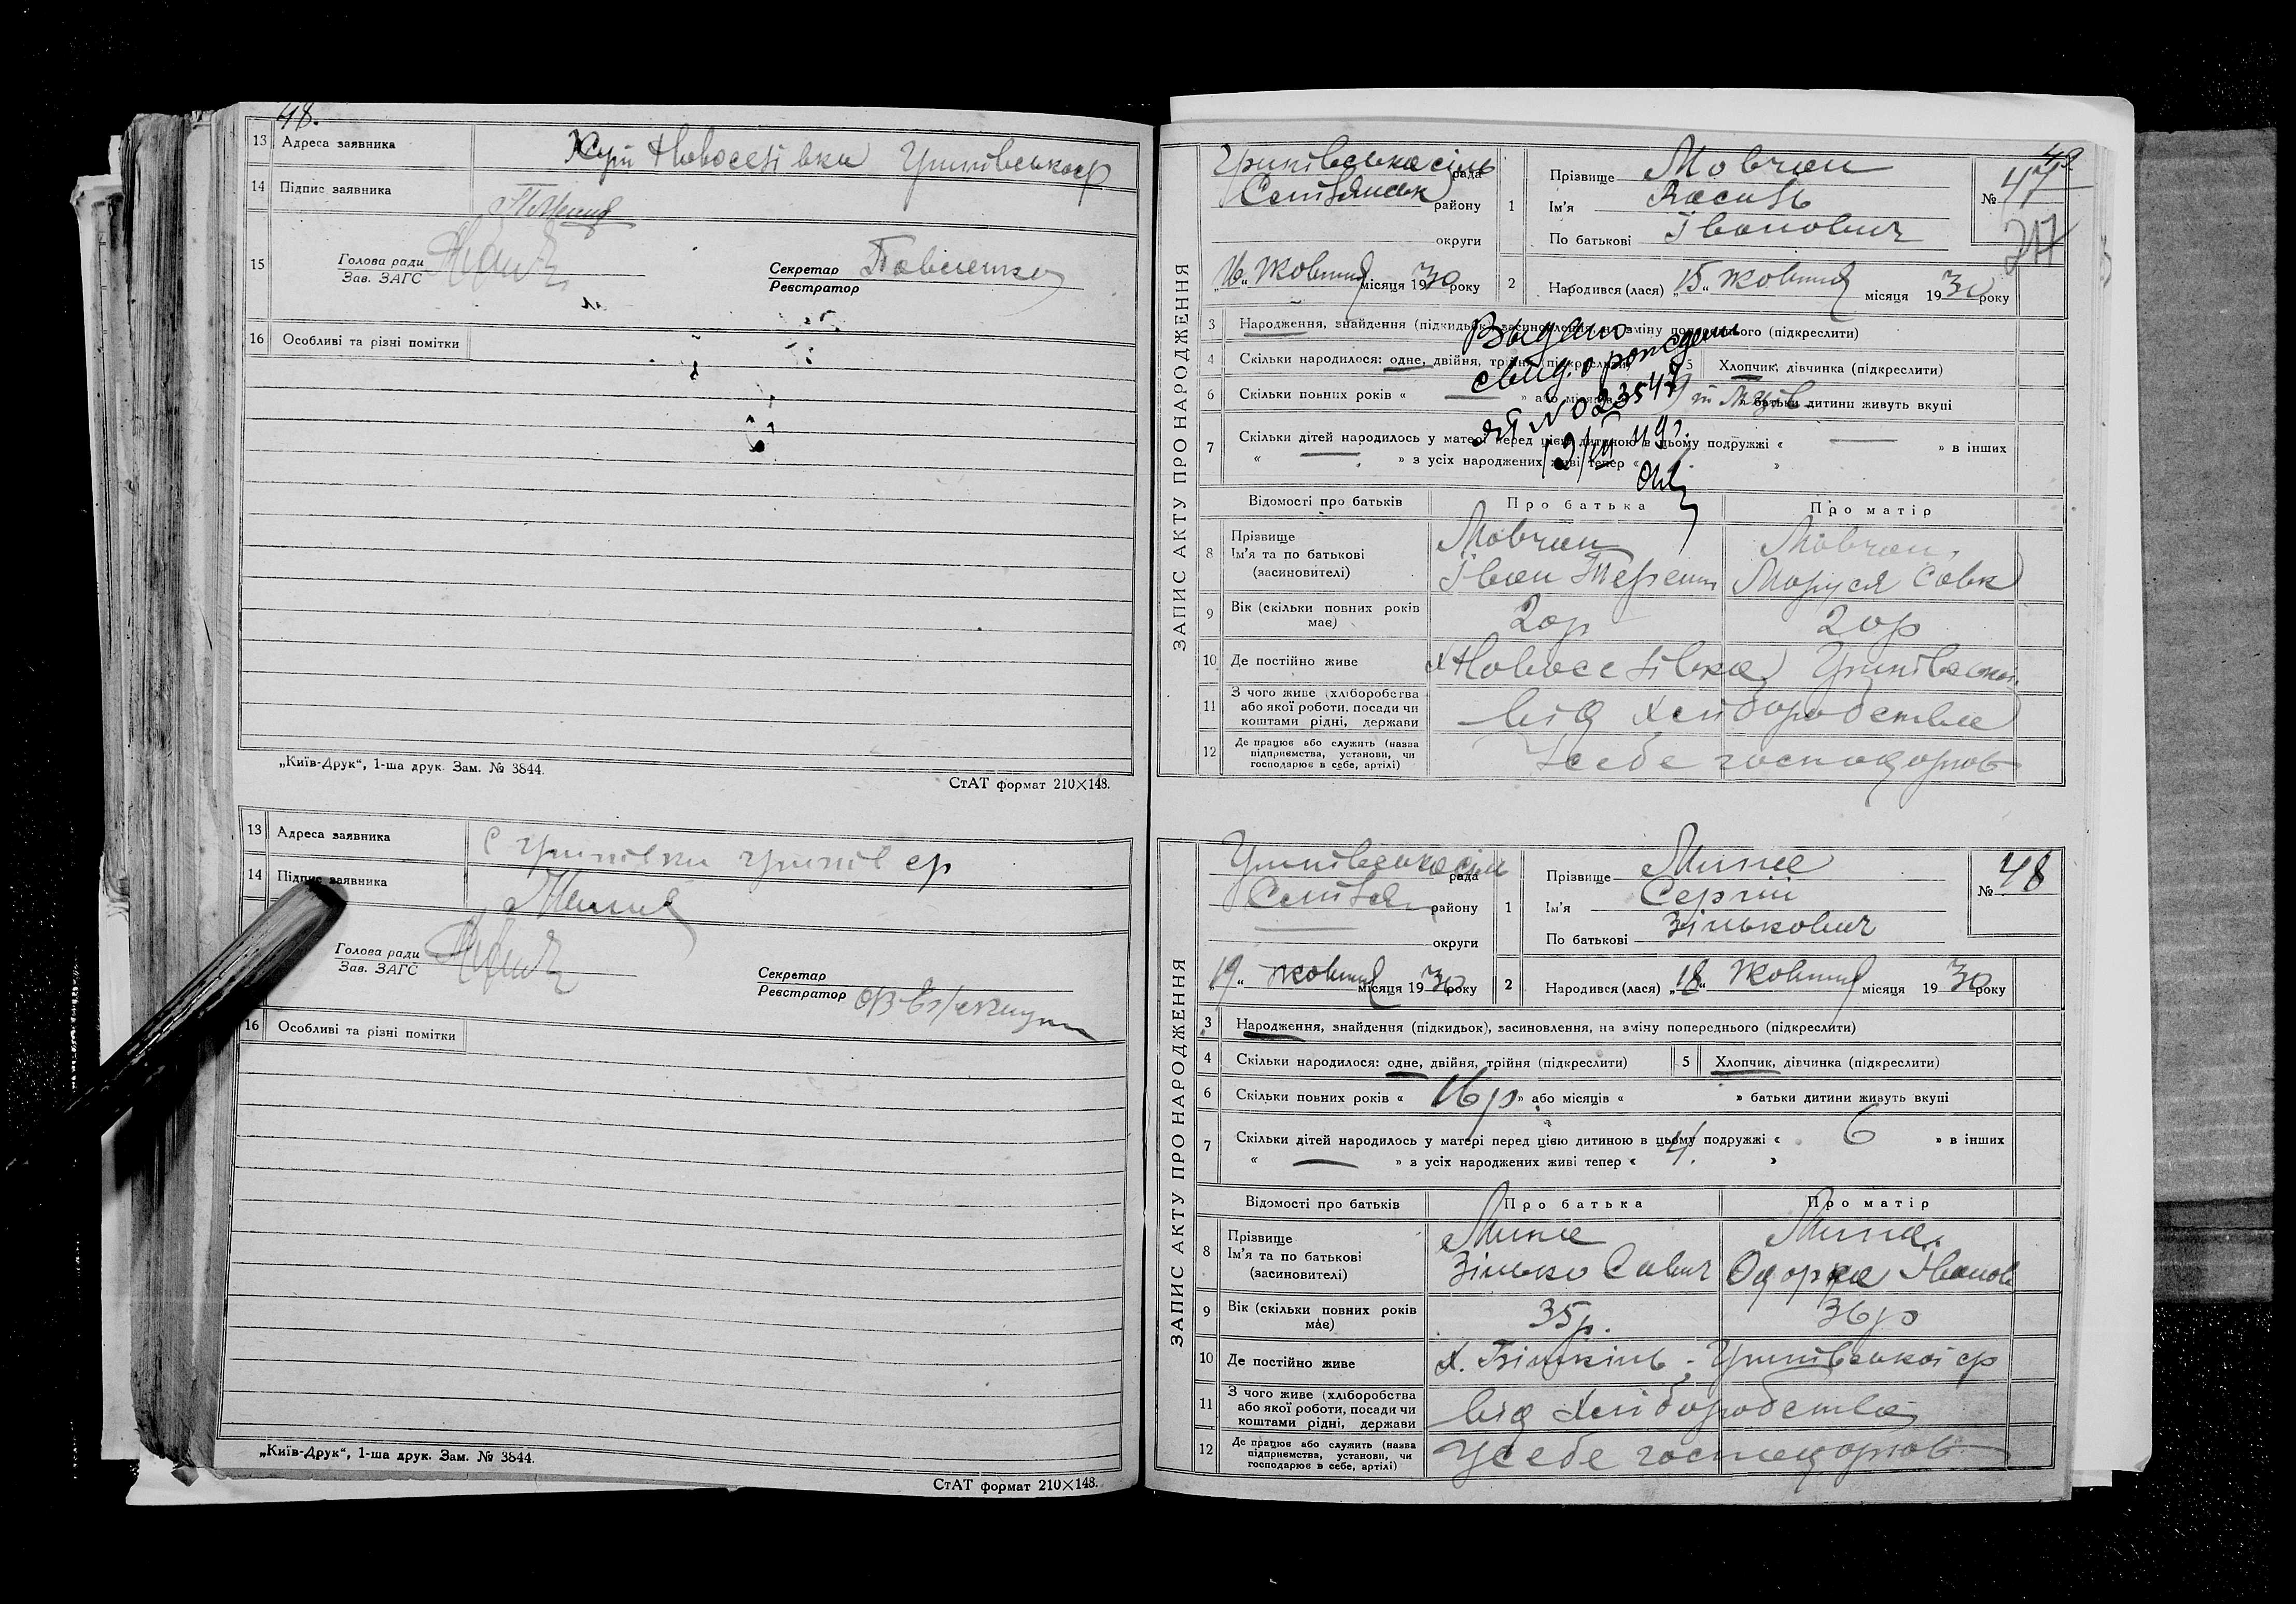 48.
13 Адреса заявника
14 Підпис заявника
15 Голова ради
Зав. ЗАГС
Секретар
Реєстратор
16 Особливі та різні помітки
„Київ-Друк“, 1-ша друк. Зам. № 3844.
СтАТ формат 210×148.
13 Адреса заявника
14 Підпис заявника
Голова ради
Зав. ЗАГС
Секретар
Реєстратор
16 Особливі та різні помітки
„Київ-Друк“, 1-ша друк. Зам. № 3844.
СтАТ формат 210×148.
49
ЗАПИС АКТУ ПРО НАРОДЖЕННЯ
рада
району
округи
„16“ Жовтня місяця 1930 року
1 Прізвище Мовчан
Ім'я Василь
По батькові Іванович
№ 47
217
2 Народився (лася) „15“ Жовтня місяця 1930 року
3 Народження, знайдення (підкидьок), засиновлення, на зміну попереднього (підкреслити)
4 Скільки народилося: одне, двійня, трійня (підкреслити) 5 Хлопчик, дівчинка (підкреслити)
6 Скільки повних років « — » або місяців батьки дитини живуть вкупі
7 Скільки дітей народилось у матері перед цією дитиною в цьому подружжі « — » в інших
« — » з усіх народжених живі тепер «
Выдано
свид. о рожден
Відомості про батьків Про батька Про матір
8 Прізвище
Ім'я та по батькові
(засиновителі)
Мовчан Мовчан
Іван Маруся Савк
9 Вік (скільки повних років має) 20р 20р
10 Де постійно живе х Новоселівка
11 З чого живе (хліборобства
або якої роботи, посади чи
коштами рідні, держави
від хліборобства
12 Де працює або служить (назва
підприємства, установи, чи
господарює в себе, артілі)
У себе господорюв
ЗАПИС АКТУ ПРО НАРОДЖЕННЯ
рада
району
округи
19 “ Жовтня місяця 1930 року
1 Прізвище
Ім'я Сергій
По батькові Зінькович
№ 48
2 Народився (лася) „18“ Жовтня місяця 1930 року
3 Народження, знайдення (підкидьок), засиновлення, на зміну попереднього (підкреслити)
4 Скільки народилося: одне, двійня, трійня (підкреслити) 5 Хлопчик, дівчинка (підкреслити)
6 Скільки повних років « 16р » або місяців « » батьки дитини живуть вкупі
7 Скільки дітей народилось у матері перед цією дитиною в цьому подружжі « 6 » в інших
« — » з усіх народжених живі тепер « 4. »
Відомості про батьків Про батька Про матір
8 Прізвище
Ім'я та по батькові
(засиновителі)
Зінько Савич Одорка Іванов
9 Вік (скільки повних років має) 35р. 36р
10 Де постійно живе х.
11 З чого живе (хліборобства
або якої роботи, посади чи
коштами рідні, держави
від хліборобства
12 Де працює або служить (назва
підприємства, установи, чи
господарює в себе, артілі)
У себе господорюв